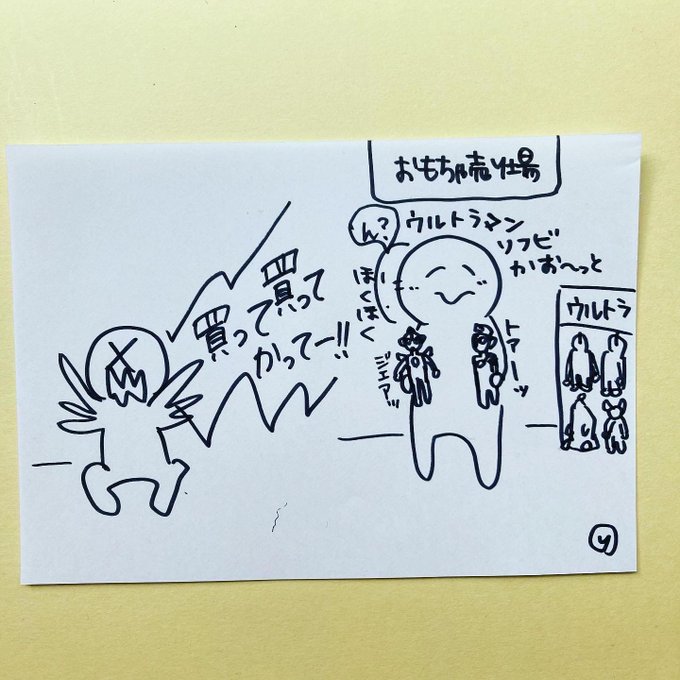 おもちゃ売り場
ん?
ウルトラマン
ソフビ
かお〜っと
ほくほく
買って買って
かってー!!
ジェアッ
トァーッ
ウルトラ
y